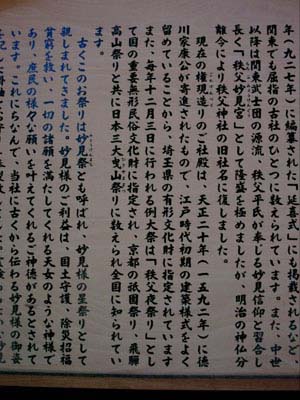 年（九二七年）に編纂された「延喜式」にも掲載されるなど、
関東でも屈指の古社のひとつに数えられています。また、中世
以降は関東武士団の源流、秩父平氏が奉じる妙見信仰と習合し
長く「秩父妙見宮」として隆盛を極めましたが、明治の神仏分
離令により秩父神社の旧社名に復しました。
現在の権現造りのご社殿は、天正二十年（一五九二年）に徳
川家康公が寄進されたもので、江戸時代初期の建築様式をよく
留めていることから、埼玉県の有形文化財に指定されています
また、毎年十二月三日に行われる例大祭は「秩父夜祭り」とし
て国の重要無形民俗文化財に指定され、京都の祇園祭り、飛騨
高山祭りと共に日本三大曳山祭りに数えられ全国に知られてい
ます。
古くこのお祭りは妙見祭とも呼ばれ、妙見様の星祭りとして
親しまれてきました。妙見様のご利益は、国土守護、除災招福
貧窮を救い、一切の諸願を満たしてくれる天女のような神様で
あり、庶民の様々な願いを叶えてくれるご神徳があるとされて
います。これにちなんで、当社に古くから伝わる妙見様の御姿